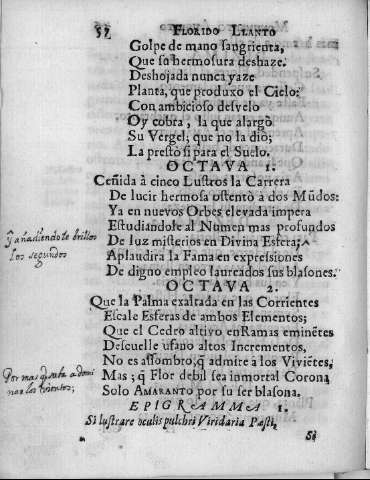 52 FLORIDO LLANTO
Golpe de mano sangrienta,
Que su hermosura deshaze.
Deshojada nunca yaze
Planta, que produxo el Cielo:
Con ambicioso desvelo
Oy cobra, la que alargò
Su Vergel; que no la diò;
La prestò si para el Suelo.
OCTAVA 1.
Ceñida à cinco Lustros la Carrera
De lucir hermosa ostentò a dos Mũdos:
Ya en nuevos Orbes elevada impera
Estudiandole al Numen mas profundos
ỹ añadiendole brillos
los segundos
De luz misterios en Divina Esfera;
Aplaudirà la Fama en expressiones
De digno empleo laureados sus blasones.
OCTAVA 2.
Que la Palma exaltada en las Corrientes
Escale Esferas de ambos Elementos;
Que el Cedro altivo en Ramas eminẽtes
Descuelle ufano altos Incrementos,
No es assombro; q̃ admire à los Viviẽtes,
Por mas q̃ suba a domi
nar los vientos;
Mas; q̃ Flor debil sea inmortal Corona
Solo AMARANTO por su ser blasona.
EPIGRAMMA 1.
Si lustrare oculis pulchri Viridaria Pæsti,
Si